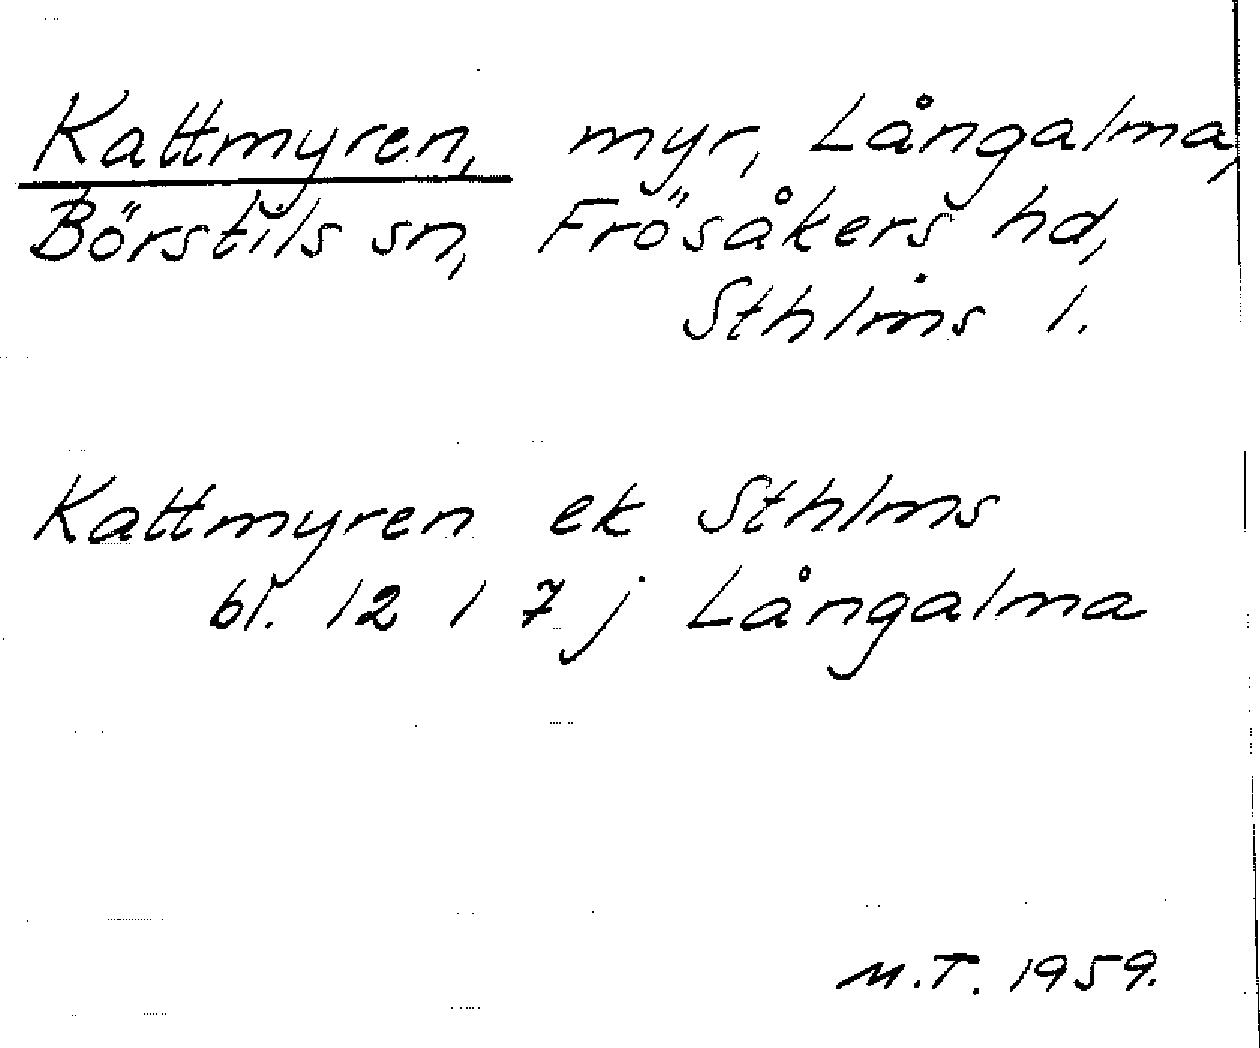 Kattmyren, myr, Långalma,
Börstils sn, Frösåkers hd,
Sthlms l.
Kattmyren ek Sthlms
bl. 12 I 7 j Långalma
M.T. 1959.